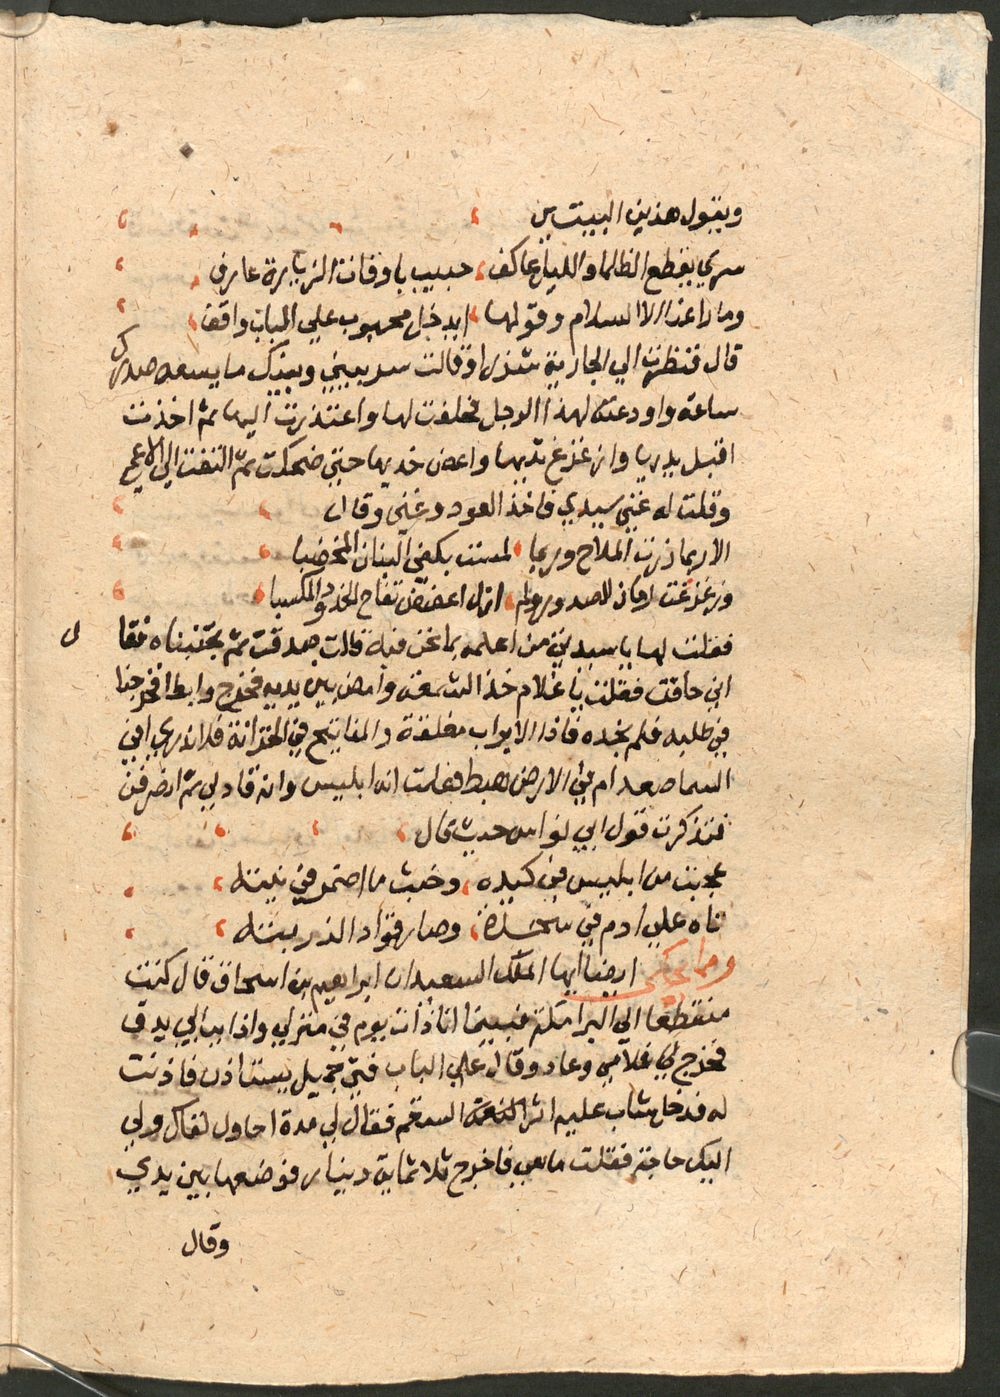 ويقول هذين البيتين
سري يقطع الظلما والليل عاكف حبيب باوقات الزيارة عارف
وما راعنا الا السلام وقولها ايدخل محبوب علي الباب واقف
قال فنظرت الي الجارية شذرا وقالت سر بيني وبينك ما يسعه صدرك
ساعة واودعته لهذا الرجل فحلفت لها واعتذرت اليها ثم اخذت
اقبل يديها وازغزغ ثديها واعض خديها حتي ضحكت ثم التفت الي الاعمي
وقلت له غني سيدي فاخذ العود وغني وقال
الا ربما زرت الملاح وربما لمست بكفي البنان المخضبا
وزغزغت رمان الصدور ولم ازل اعضض تفاح الخدود المكتبا
فقلت لها يا سيدتي من اعلمه بما نحن فيه قالت صدقت ثم تجنبناه فقال
اني حاقن فقلت يا غلام خذ الشمعة وامض بين يديه فخرج وابطا فخرجنا
في طلبه فلم نجده فاذا الابواب مغلقة والمفاتيح في الخزانة فلا ندري افي
السما صعد ام في الارض هبط فعلمت انه ابليس وانه قاد لي ثم انصرفت
فتذكرت قول ابي نواس حيث قال
عجبت من ابليس في كبره وخبث ما اضمر في نيته
تاه علي ادم في سجدة وصار قوادا لذريته
ومما يحكي ايضا ايها الملك السعيد ان ابراهيم بن اسحاق قال كنت
منقطعا الي البرامكة فبينما انا ذات يوم في منزلي واذا ببابي يدق
فخرج لي غلامي وعاد وقال علي الباب فتي جميل يستاذن فاذنت
له فدخل شاب عليه اثر السقم فقال لي مدة احاول لقاك ولي
اليك حاجة فقلت ما هي فاخرج ثلاثماية دينار فوضعها بين يدي
وقال